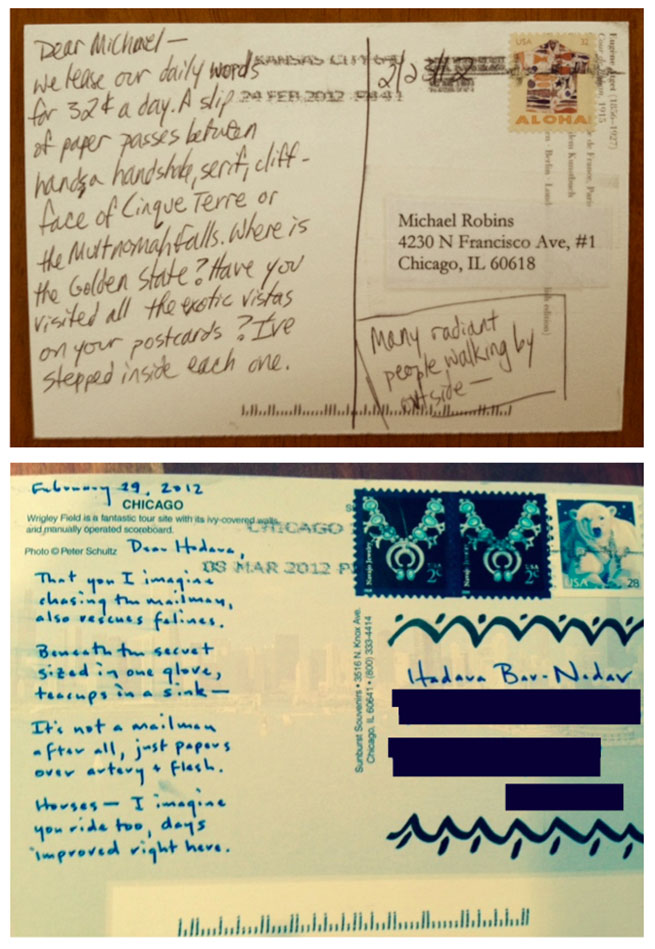 Dear Michael —
we lease our daily words
for 32¢ a day. A slip
of paper passes between
hands, a handshake, serif, cliff-
face of Cinque Terre or
the Multnomah Falls. Where is
the Golden State? Have you
visited all the exotic vistas
on your postcards? I've
stepped inside each one.
KANSAS CITY
24 FEB 2012 PM
2/23/12
USA 32
ALOHA
Eugène Atget (1856–1927)
1915
de France, Paris
Michael Robins
4230 N Francisco Ave, #1
Chicago, IL 60618
Many radiant
people walking by
outside —
February 29, 2012
CHICAGO
Wrigley Field is a fantastic tour site with its ivy-covered walls
and manually operated scoreboard.
Photo © Peter Schultz
CHICAGO
08 MAR 2012
Dear Hadara,
That you I imagine
chasing the mailman,
also rescues felines.
Beneath the secret
sized in one glove,
teacups in a sink —
It's not a mailman
after all, just papers
over artery & flesh.
Horses — I imagine
you ride too, days
improved right here.
Navajo Jewelry
USA 2c
Navajo Jewelry
USA 2c
USA 28
Sunburst Souvenirs • 3516 N. Knox Ave.
Chicago, IL 60641 • (800) 333-4414
Hadara Bar-Nadav